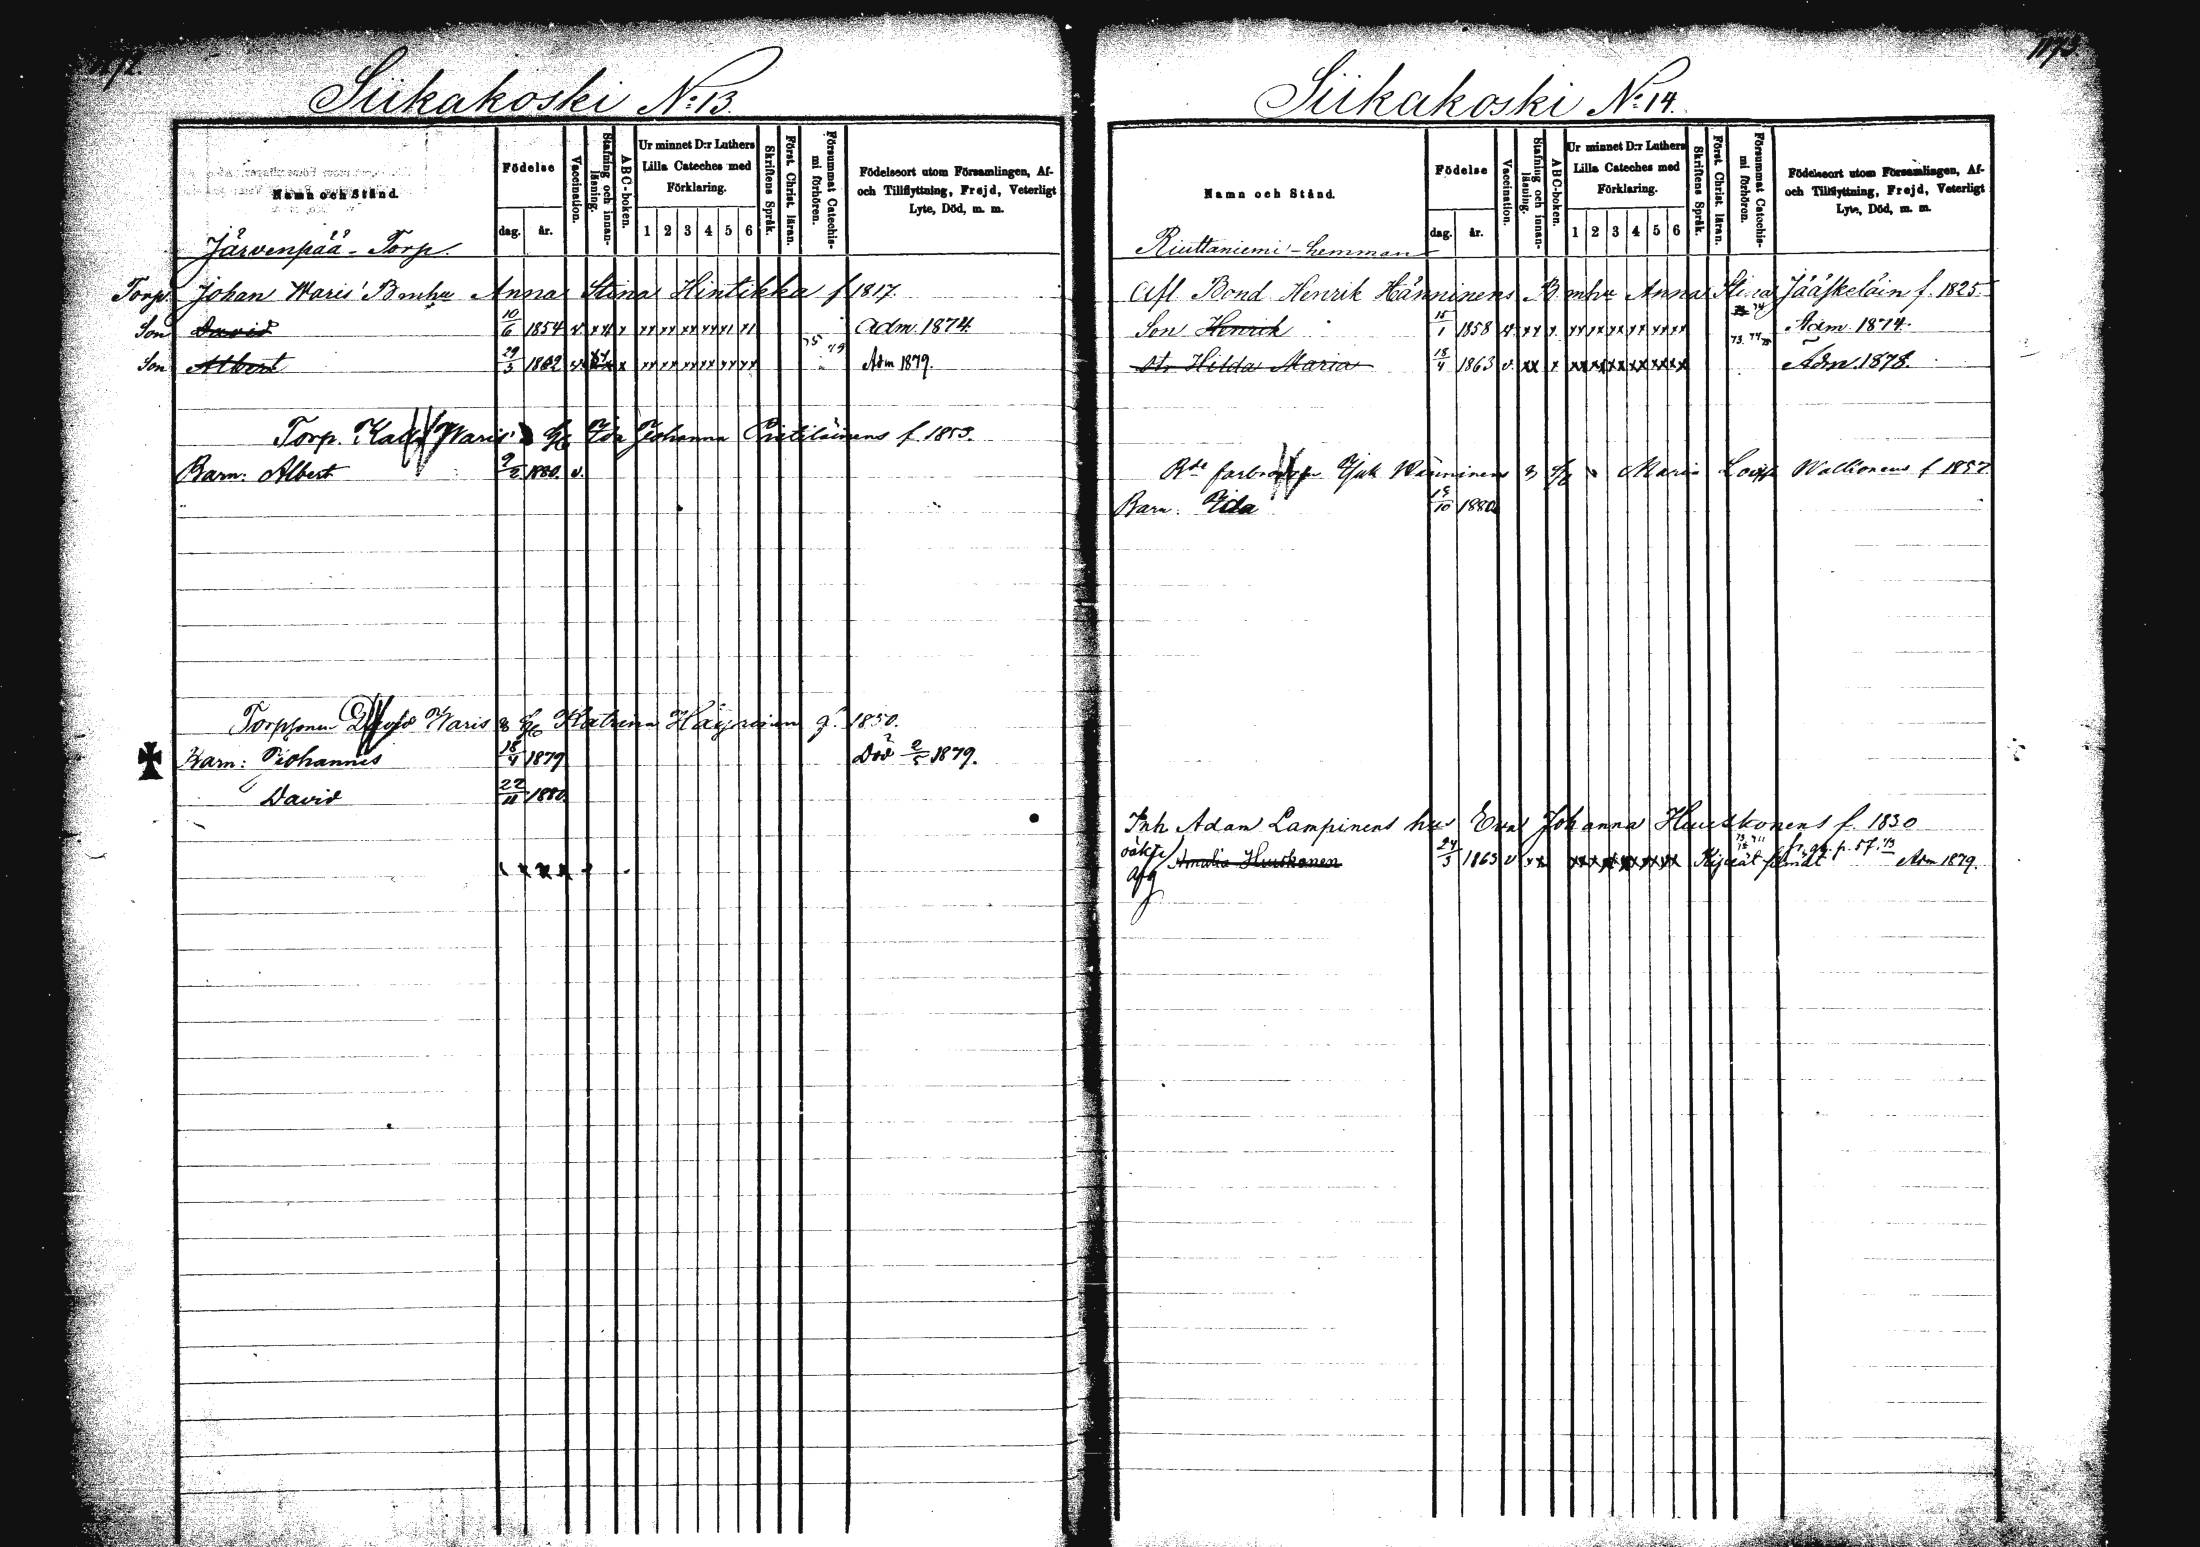 Siikakoski No: 13.
Namn och Stånd.
Födelse
dag.
år.
Vaccination.
Stafning och innan-
läsning.
ABC-boken.
Ur minnet D:r Luthers
Lilla Cateches med
Förklaring.
1 2 3 4 5 6
Skriftens Språk.
Först. Christ. läran.
Försummat Catechis-
mi förhören.
Födelseort utom Församlingen, Af-
och Tillflyttning, Frejd, Veterligt
Lyte, Död, m. m.
Järvenpää - Torp.
Torp. Johan Waris' B mhu Anna Stina Hintikka f 1817.
Son David 10/6 1854 v xx x xx xx xx xx xx Adm. 1874.
Son Albert 29/3 1862 v. xx x xx xx xx xx xx xx 75 79 Adm 1879.
Torp. Waris' Ida Johanna f. 1853.
Barn: Albert 9/2 1880. v.
Torpsonen David Waris & Katrina Häyrinen f. 1850.
Barn: Johannes 18/4 1879 Död 2/5 1879.
David 22/11 1880.
1173
Siikakoski No: 14.
Namn och Stånd.
Födelse
dag.
år.
Vaccination.
Stafning och innan-
läsning.
ABC-boken.
Ur minnet D:r Luthers
Lilla Cateches med
Förklaring.
1 2 3 4 5 6
Skriftens Språk.
Först. Christ. läran.
Försummat Catechis-
mi förhören.
Födelseort utom Församlingen, Af-
och Tillflyttning, Frejd, Veterligt
Lyte, Död, m. m.
Riuttaniemi - hemman
Afl. Bond Henrik Hänninens B mhu Anna Stina Jääskeläin f. 1825.
Son Henrik 15/1 1858 v. xx x. xx xx xx xx xx xx 74 Adm. 1874.
Dtr Hilda Maria 18/4 1863 v. xx x xx xx xx xx xx xx 73. 74 75 Adm. 1878.
Hänninens & Maria Lovisa f 1857
Barn: Ida 15/10 1880
Inh Adam Lampinens hus Eva Johanna Huuskonens f. 1830
oäkta Amalia Huuskonen 24/3 1863 v xx xx xx xx xx xx xx p. 57. Adm 1879.